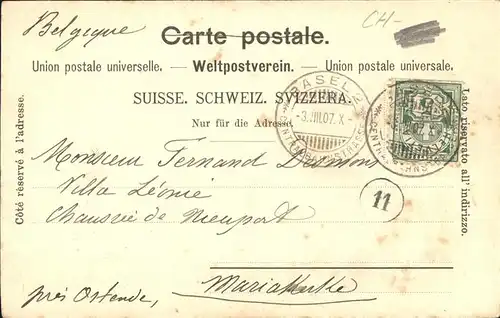 Belgique
CH-
Carte postale.
Union postale universelle. — Weltpostverein. — Union postale universale.
SUISSE. SCHWEIZ. SVIZZERA.
Nur für die Adresse
BASEL 2
-3.VIII.07. X-
Côté réservé à l'adresse.
Lato riservato all' indirizzo.
Monsieur Fernand
Villa Léonie
Chaussée de Nieuport
11
Mariakerke
près Ostende,